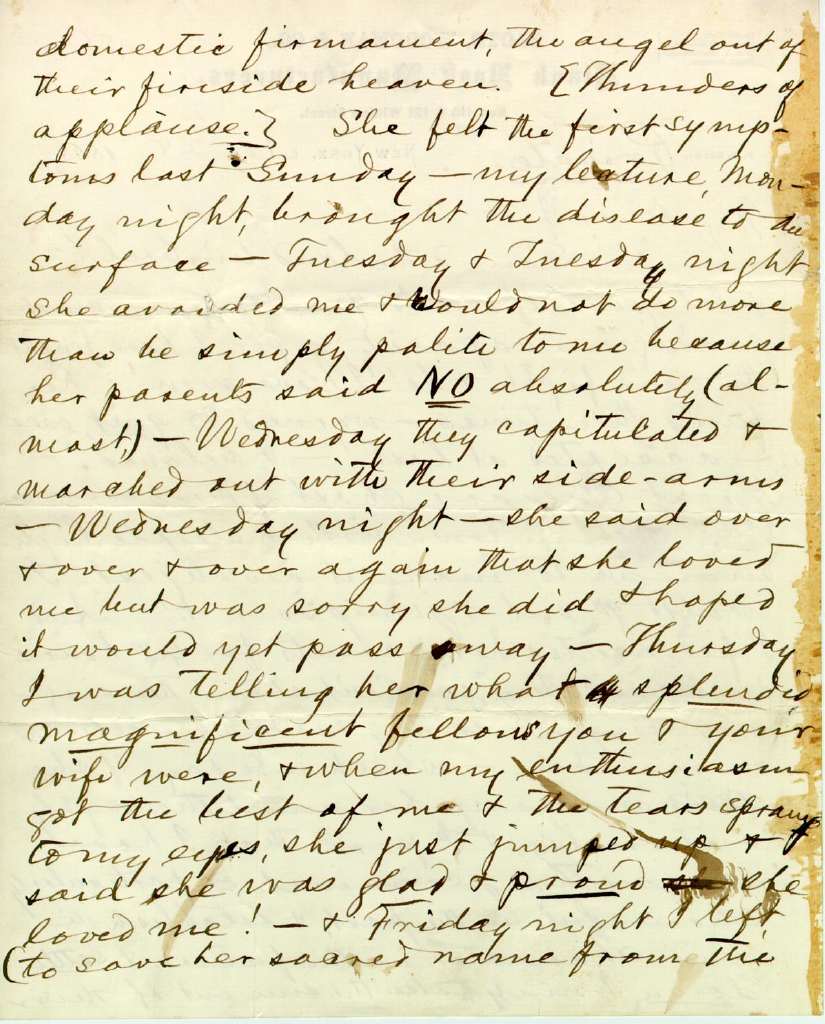 domestic firmament, the angel out of
their fireside heaven. [Thunders of
applause.] She felt the first symp-
toms last Sunday — my lecture, Mon-
day night, brought the disease to the
surface — Tuesday & Tuesday night
she avoided me & would not do more
than be simply polite to me because
her parents said NO absolutely (al-
most,) — Wednesday they capitulated &
marched out with their side-arms
— Wednesday night — she said over
& over & over again that she loved
me but was sorry she did & hoped
it would yet pass away — Thursday
I was telling her what splendid,
magnificent fellows you & your
wife were, & when my enthusiasm
got the best of me & the tears sprang
to my eyes, she just jumped up &
said she was glad & proud she
loved me! — & Friday night I left,
(to save her sacred name from the